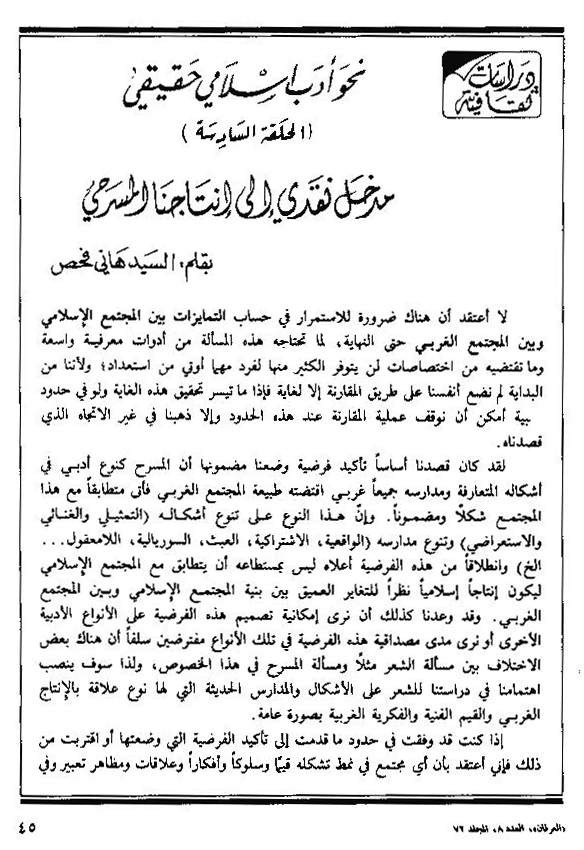 دراسات
ثقافية
نحو أدب اسلامي حقيقي
(الحلقة السادسة)
مدخل نقدي إلى إنتاجنا المسرحي
بقلم: السيد هاني فحص
لا أعتقد أن هناك ضرورة للاستمرار في حساب التمايزات بين المجتمع الإسلامي
وبين المجتمع الغربي حتى النهاية، لما تحتاجه هذه المسألة من أدوات معرفية واسعة
وما تقتضيه من اختصاصات لن يتوفر الكثير منها لفرد مهما أوتي من استعداد؛ ولأننا من
البداية لم نضع أنفسنا على طريق المقارنة إلا لغاية فإذا ما تيسر تحقيق هذه الغاية ولو في حدود
بية أمكن أن نوقف عملية المقارنة عند هذه الحدود وإلا ذهبنا في غير الاتجاه الذي
قصدناه.
لقد كان قصدنا أساساً تأكيد فرضية وضعنا مضمونها أن المسرح كنوع أدبي في
أشكاله المتعارفة ومدارسه جميعاً غربي اقتضته طبيعة المجتمع الغربي فأتى متطابقاً مع هذا
المجتمع شكلًا ومضموناً. وإنّ هذا النوع على تنوع أشكاله (التمثيلي والغنائي
والاستعراضي) وتنوع مدارسه (الواقعية، الاشتراكية، العبث، السوريالية، اللامعقول...
الخ) وانطلاقاً من هذه الفرضية أعلاه ليس بمستطاعه أن يتطابق مع المجتمع الإسلامي
ليكون إنتاجاً إسلامياً نظراً للتغاير العميق بين بنية المجتمع الإسلامي وبين المجتمع
الغربي. وقد وعدنا كذلك أن نرى إمكانية تصميم هذه الفرضية على الأنواع الأدبية
الأخرى أو نرى مدى مصداقية هذه الفرضية في تلك الأنواع مفترضين سلفاً أن هناك بعض
الاختلاف بين مسألة الشعر مثلًا ومسألة المسرح في هذا الخصوص، ولذا سوف ينصب
اهتمامنا في دراستنا للشعر على الأشكال والمدارس الحديثة التي لها نوع علاقة بالإنتاج
الغربي والقيم الفنية والفكرية الغربية بصورة عامة.
إذا كنت قد وفقت في حدود ما قدمت إلى تأكيد الفرضية التي وضعتها أو اقتربت من
ذلك فإني أعتقد بأن أي مجتمع في نمط تشكله قيماً وسلوكاً وأفكاراً وعلاقات ومظاهر تعبير وفي
«العرفان»، العدد ٨، المجلد ٧٢
٤٥